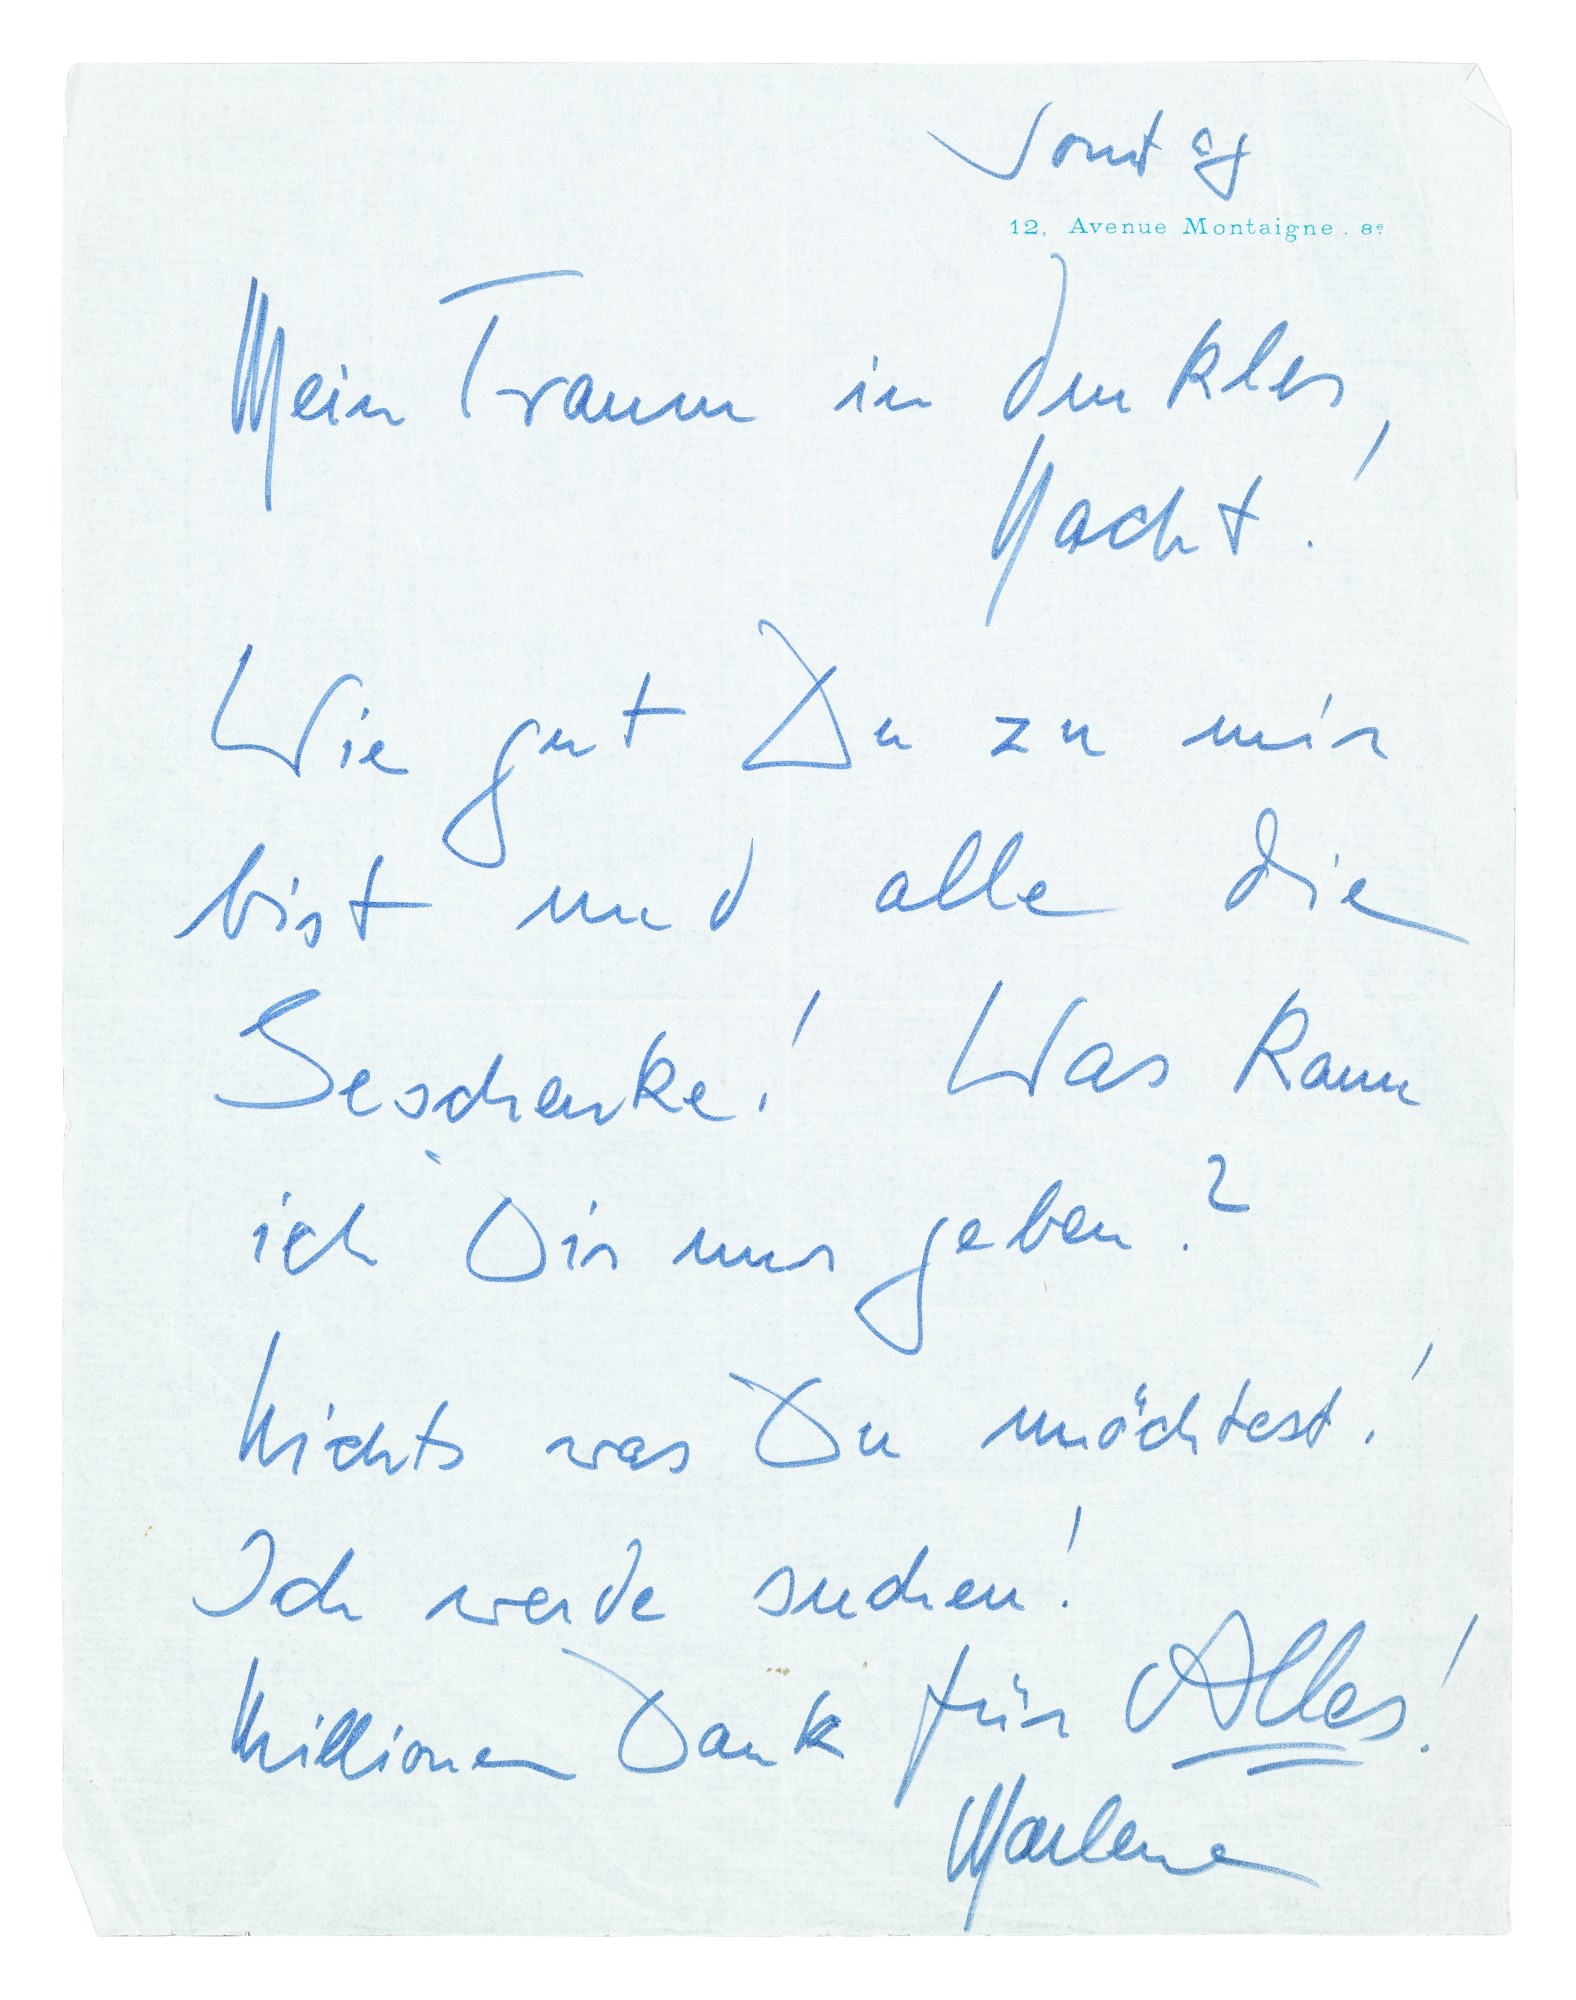 Sonntag
12, Avenue Montaigne. 8e
Mein Traum in dunkler
Nacht!
Wie gut Du zu mir
bist und alle die
Geschenke! Was kann
ich Dir nur geben?
Nichts was Du möchtest!
Ich werde suchen!
Millionen Dank für Alles!
Marlene